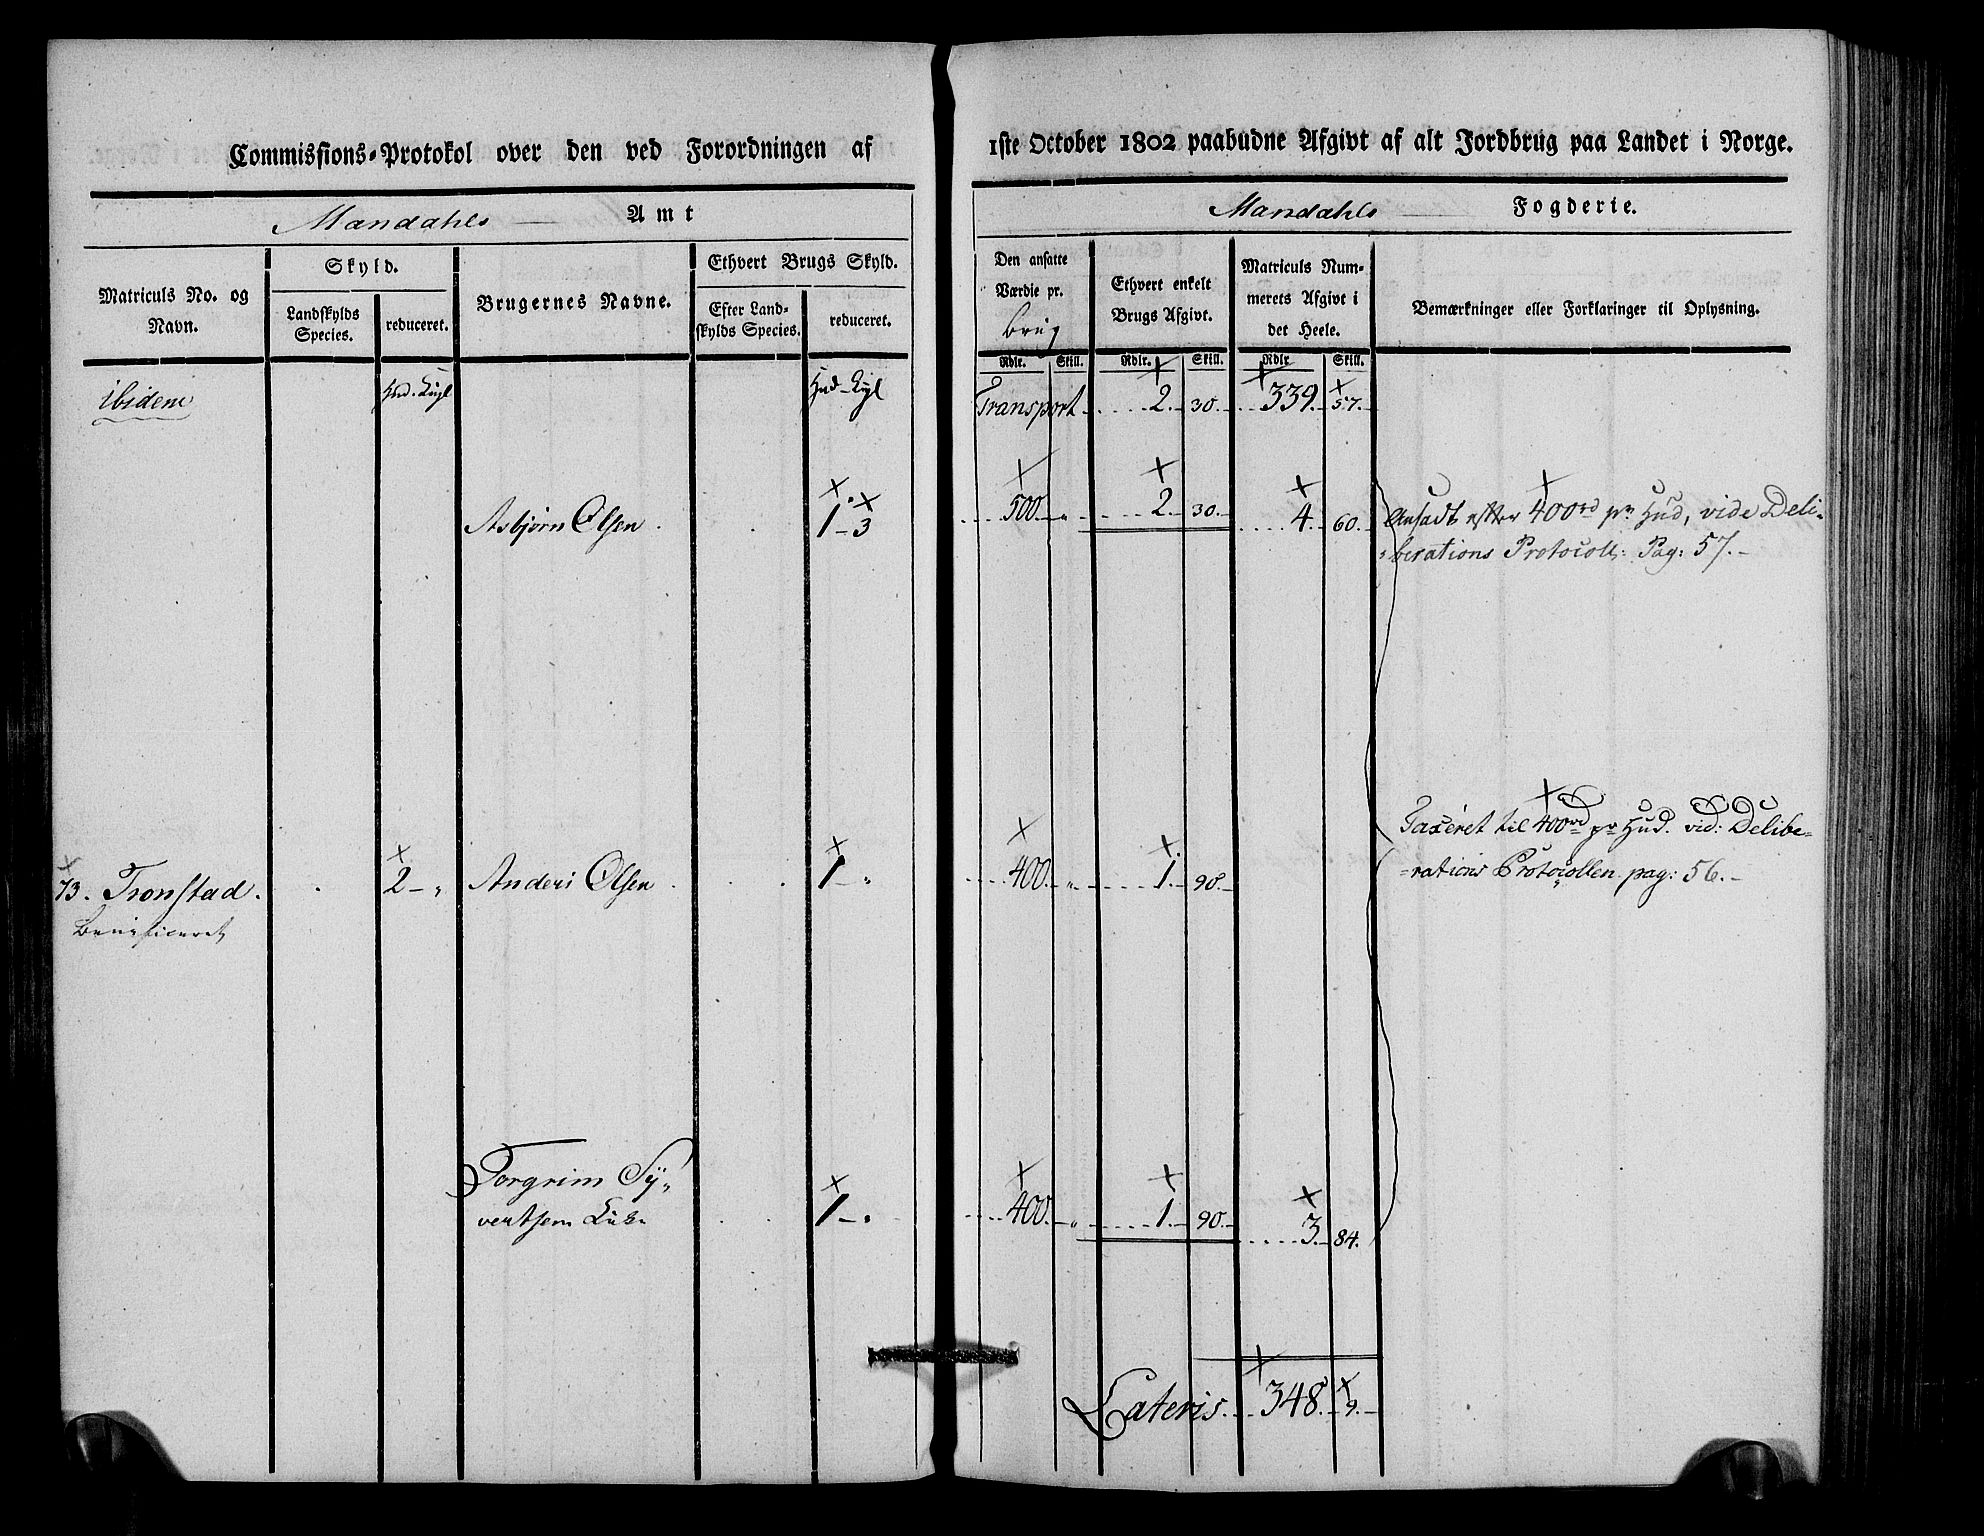 Commissions-Protokol over den ved Forordningen af
1ste October 1802 paabudne Afgivt af alt Jordbrug paa Landet i Norge.
Mandahls Amt
Mandahls Fogderie.
Matriculs No. og Navn.
Skyld.
Landskylds Species.
reduceret.
Brugernes Navne.
Ethvert Brugs Skyld.
Efter Land-
skylds Species.
reduceret.
Den ansatte
Værdie pr.
brug
Ethvert enkelt
Brugs Afgivt.
Matriculs Num-
merets Afgivt i
det Heele.
Bemærkninger eller Forklaringer til Oplysning.
Rdlr. Skill. Rdlr. Skill. Rdlr. Skill.
ibidem Hud. Hud
Transport 2. 30. 339. 57.
Asbjørn Olsen 1 3 500 2. 30. 4. 60.
Ansadt efter 400rd pr Hud, vide Deli-
berations Protocoll: Pag: 57.
Taxeret til 400rd pr Hud. vid: Delibe-
rations Protocollen pag: 56.
73. Tronstad. 2 Anders Olsen 1 400. 1. 90.
Beneficeret
Torgrim Sy-
vertsen 1 400. 1. 90. 3. 84.
Lateris 348. 9.